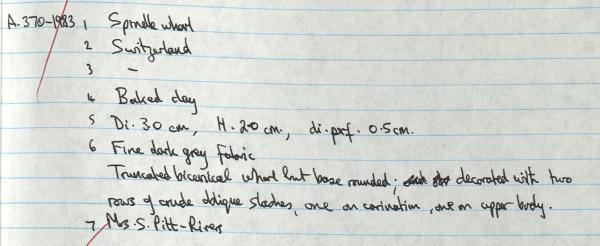 A.370-1983 1 Spindle whorl
2 Switzerland
3 -
4 Baked clay
5 Di. 3.0 cm, H. 2.0 cm, di. perf. 0.5 cm.
6 Fine dark grey fabric
Truncated biconical whorl but base rounded; decorated with two
rows of crude oblique slashes, one on carination, one on upper body.
7 Mrs. S. Pitt-Rivers